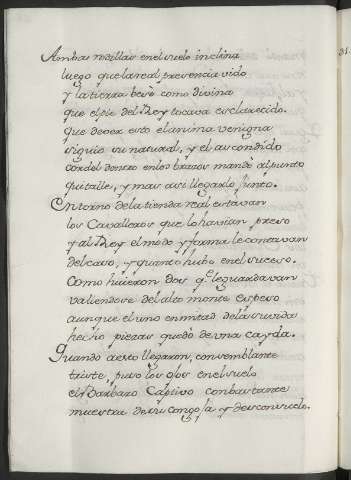 Ambas rodillas en el suelo inclina
luego que la real presencia vido
y la tierra besò como divina
que el pie del Rey tocava esclarecido.
que de ver esto el anima venigna
siguio su natural, y el ascondido
cordel dentro en los brazos mandò al punto
quitalle, y mas assi llegarlo junto.
En torno de la tienda real estavan
los Cavalleros que lo havian preso
y al Rey el modo y forma le contavan
del caso, y quanto hubo en el suceso.
Como huieron dos q.e le guardavan
valiendose del alto monte espeso
aunque el uno en mitad de la suvida
hecho piezas quedò de una cayda.
Quando a esto llegaron, con semblante
triste, puso los ojos en el suelo
el Barbaro Captivo con bastante
muestra de su congoja y desconsuelo.